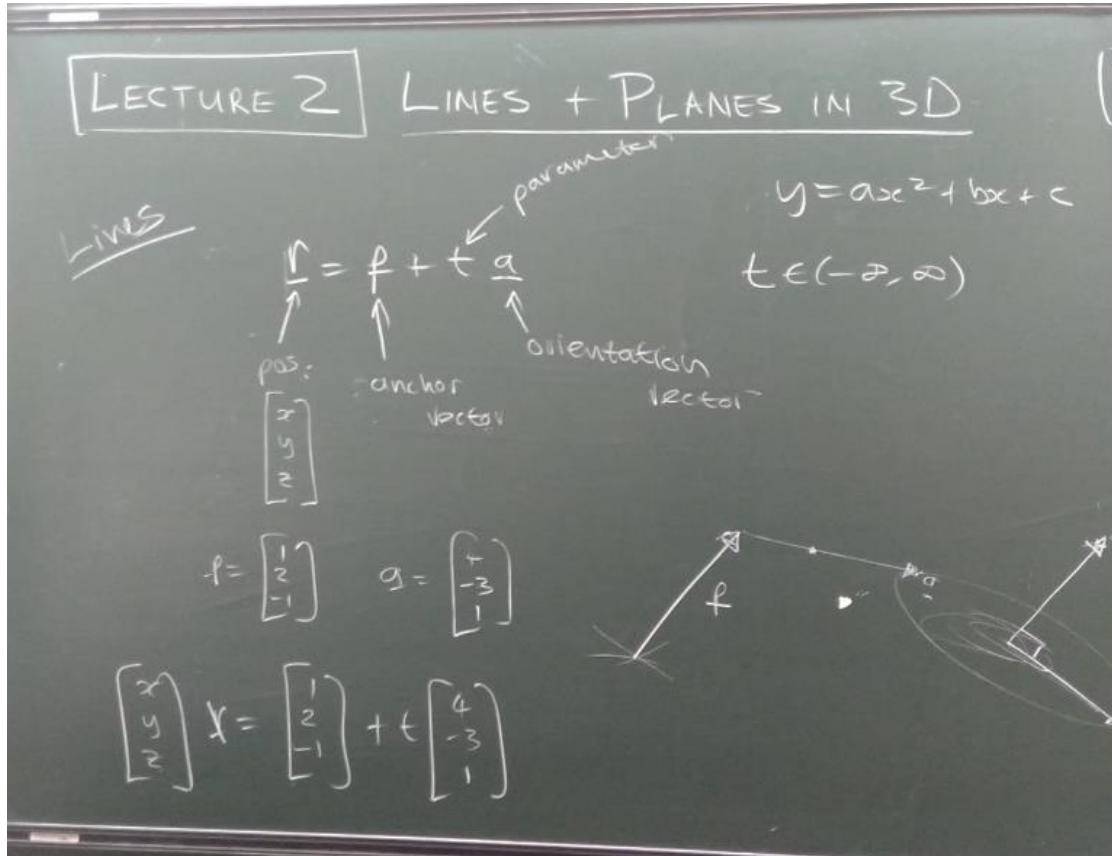 LECTURE 2 LINES + PLANES IN 3D
Lines
parameter
y = ax² + bx + c
r = p + t a
t ∈ (-∞, ∞)
pos:
anchor
vector
orientation
vector
[x
y
z]
p = [1
2
-1]
a = [4
-3
1]
p
a
[x
y
z] r = [1
2
-1] + t [4
-3
1]